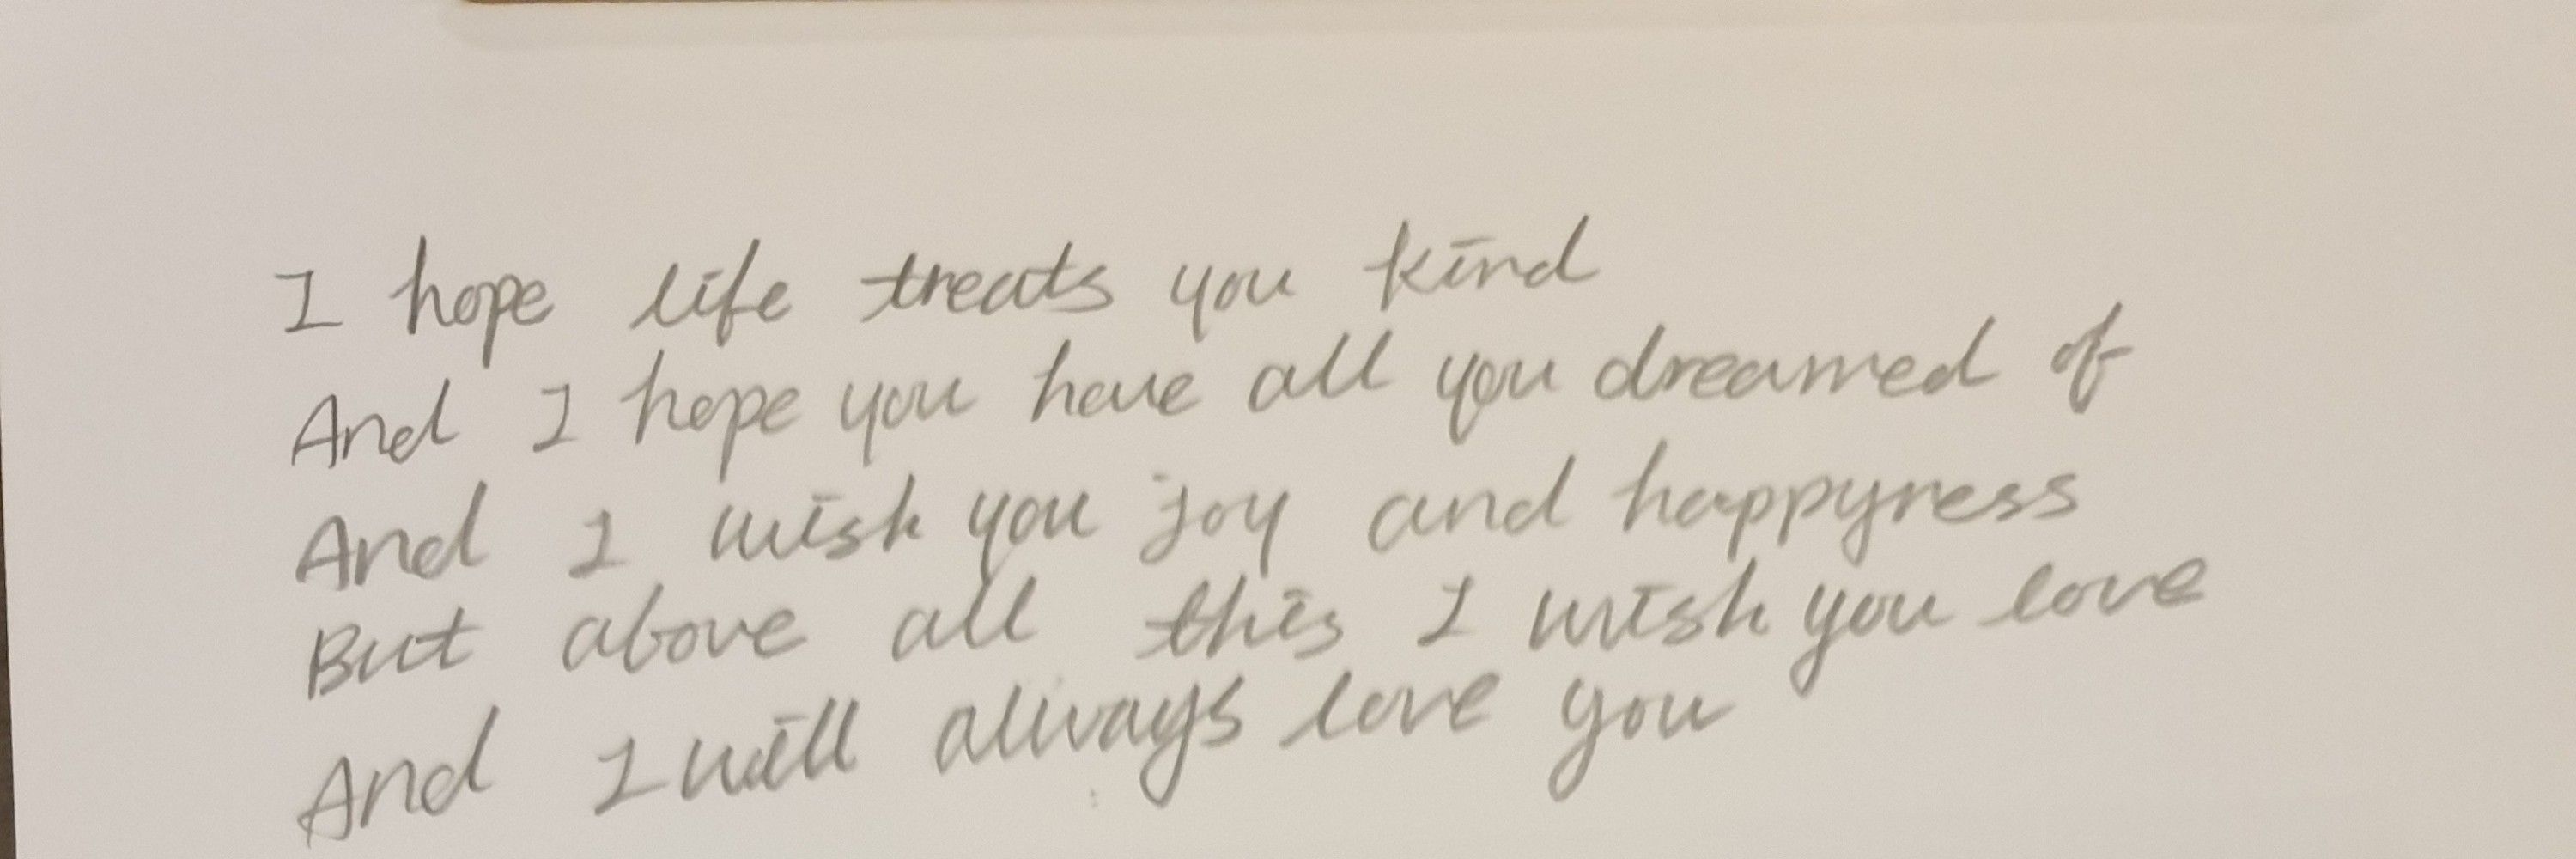 I hope life treats you kind
And I hope you have all you dreamed of
And I wish you joy and happyness
But above all this I wish you love
And I will always love you